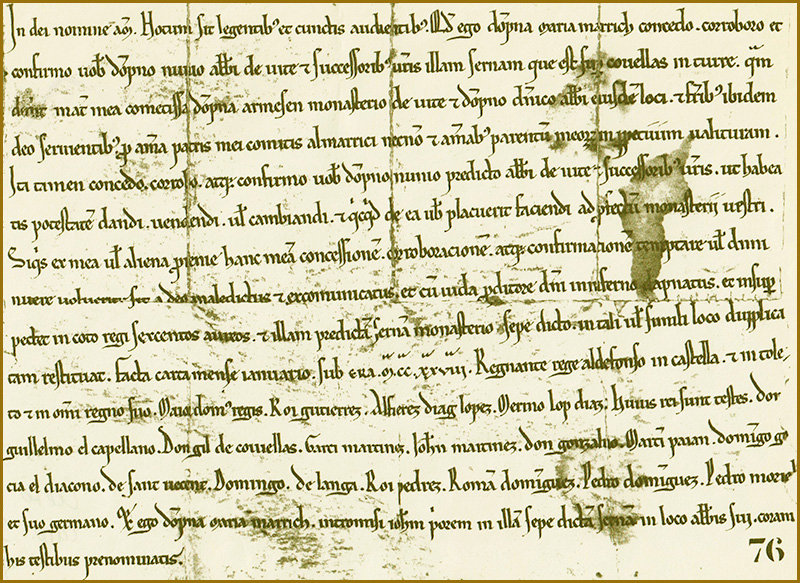 In dei nomine am̄. Notum sit legentib⁊ et cunctis audientib⁊. Ego dōpna maria marrich concedo. corroboro et
confirmo uob̄ dōpno nunio abb̄i de uite ⁊ successorib⁊ ur̄is illam sernam que est in couellas in turre. q̄m
dedit mat̄ mea comitissa dōpna armesen monasterio de uite ⁊ dōpno dn̄ico abb̄i eiusdē loci. ⁊ fr̄ib⁊ ibidem
deo seruientib⁊ ꝓ am̄a patris mei comitis almarrici necnō ⁊ am̄ab⁊ parentū meoꝝ in ꝑpetuum ualituram.
Ita tamen concedo. corroꝍo. atq; confirmo uob̄ dōpno nunio predicto abb̄i de uite ⁊ successorib⁊ ur̄is. ut habea
tis potestatē dandi. uendendi. ul̄ cambiandi. ⁊ q̄cq̄d de ea uob̄ placuerit faciendi ad ꝓfectū monasterii uestri.
Siq̄s ex mea ul̄ aliena ꝓienie hanc meā concessionē. corroboracionē. atq; confirmationē temptare ul̄ dimi
nuere uoluerit sit a deo maledictus ⁊ excomunicatus. et cū iuda ꝓditore dn̄i in inferno dapnatus. et insuꝑ
pectet in coto regi sexcentos aureos. ⁊ illam predictā sernā monasterio sepe dicto. in tali ul̄ simili loco dupplica
tam restituat. Facta carta mense ianuario. sub era. M.CC.XXVIII. Regnante rege aldefonso in castella. ⁊ in tole-
to ⁊ in om̄i regno suo. Maiordom⁊ regis. Roi gutierrez. Alfierez diag lopez. Merino lop diaz. Huius rei sunt testes. dor
guillelmo el capellano. Don gil de couuellas. Garci martinez. Joh̄n martinez. don gonzaluo. Marti paian. domīgo g
cia el diacono. de sant uicent. Domingo. de langa. Roi pedrez. Romā domīguez. Pedro domīguez. Pedro moriel
et suo germano. Ego dōpna maria marrich. intromisi ioh̄m ꝓorem in illā sepe dictā sernā in loco abb̄is sui. coram
his testibus prenominatis.
76